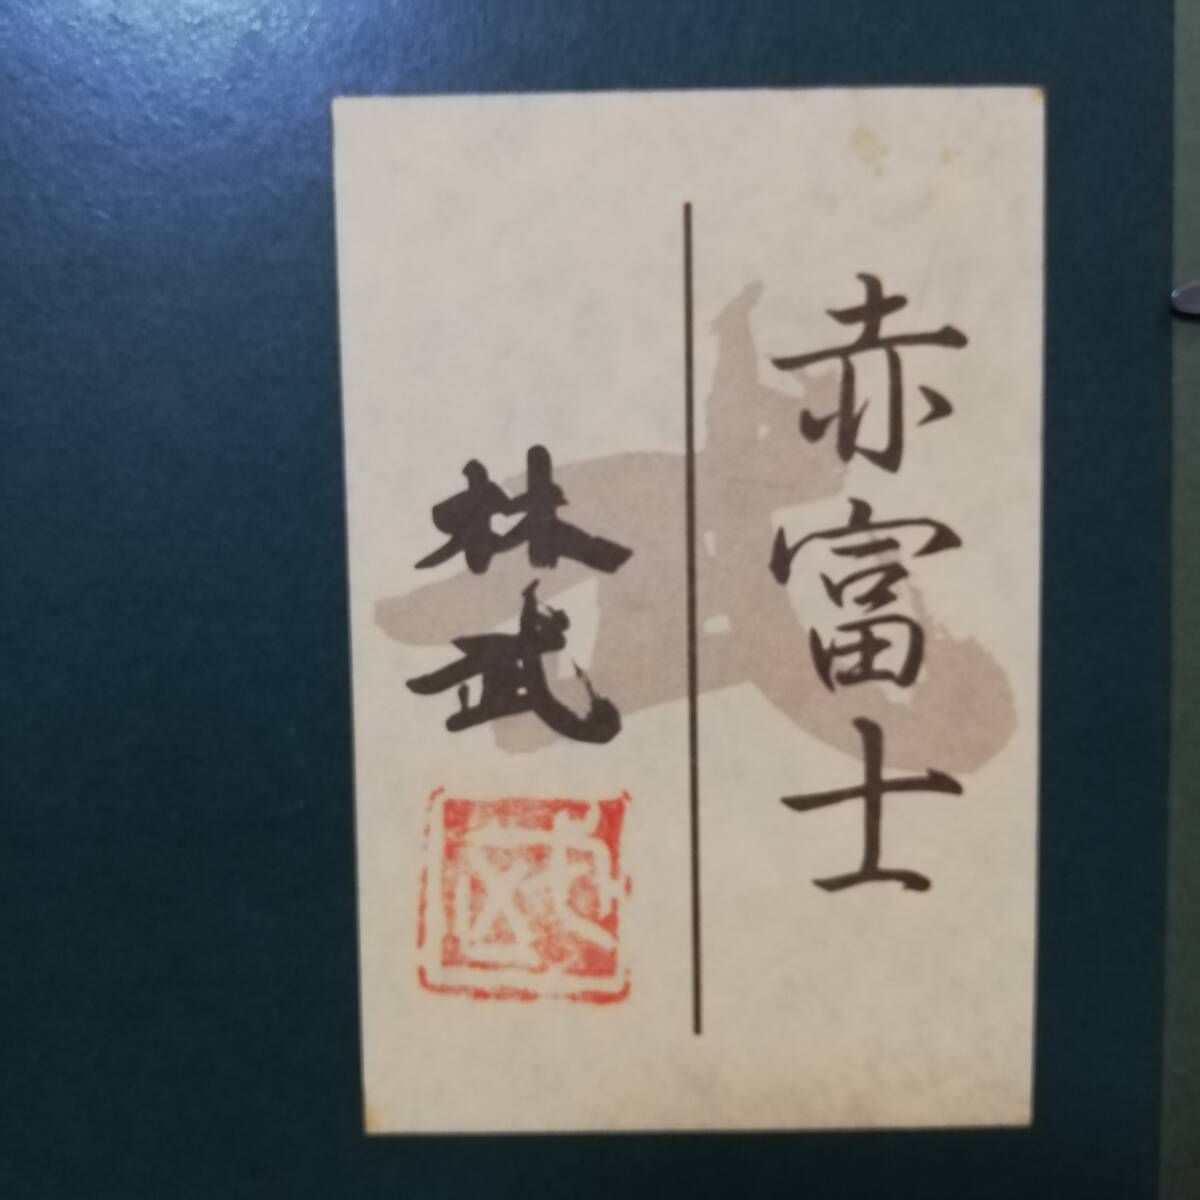 赤富士
林武
武